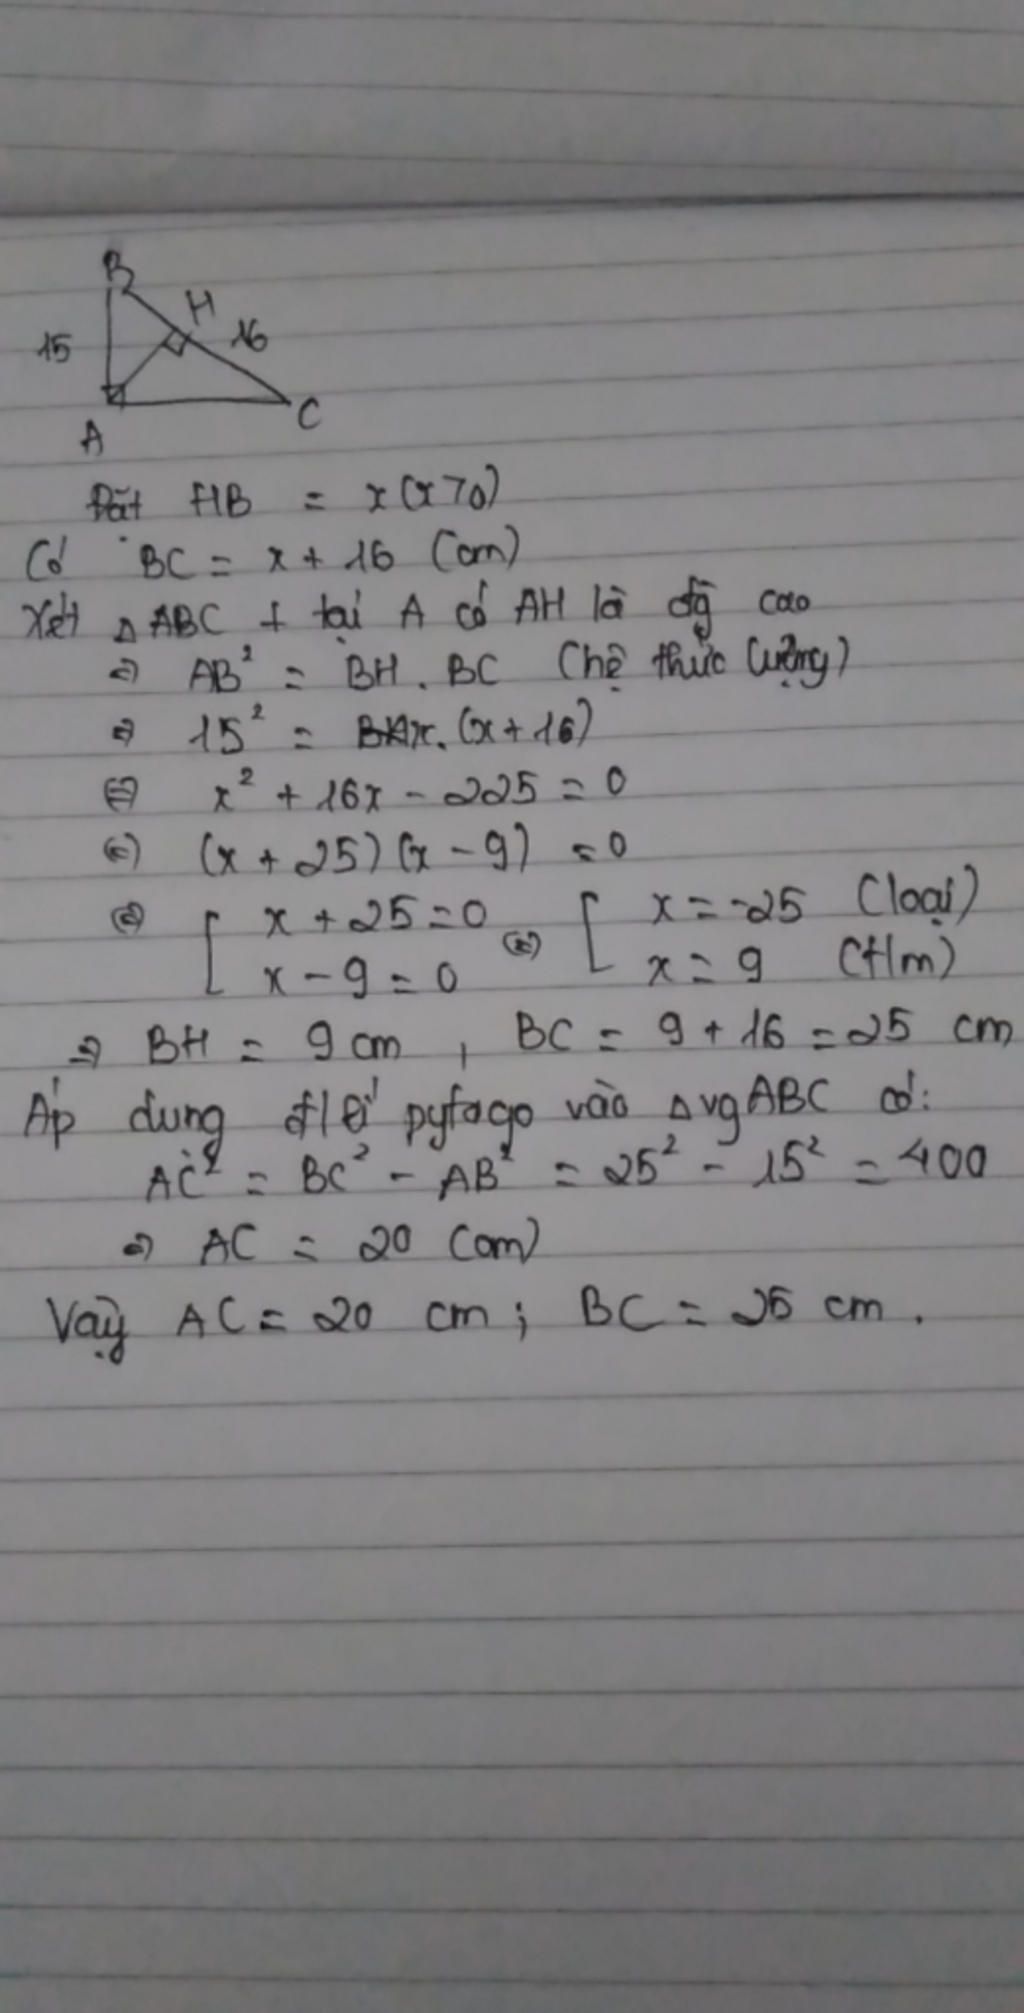 B
H
15
16
A
C
Đặt HB = x (x>0)
Có BC = x + 16 (cm)
Xét △ABC ⊥ tại A có AH là đg̃ cao
⇒ AB² = BH . BC (hệ thức lượng)
⇒ 15² = x. (x + 16)
⇔ x² + 16x - 225 = 0
⇔ (x + 25) (x - 9) = 0
⇔ [ x + 25 = 0 ⇔ [ x = -25 (loại)
x - 9 = 0 x = 9 (t/m)
⇒ BH = 9 cm , BC = 9 + 16 = 25 cm
Áp dung đ/lí pytago vào △vgABC có:
AC² = BC² - AB² = 25² - 15² = 400
⇒ AC = 20 (cm)
Vậy AC = 20 cm ; BC = 25 cm .